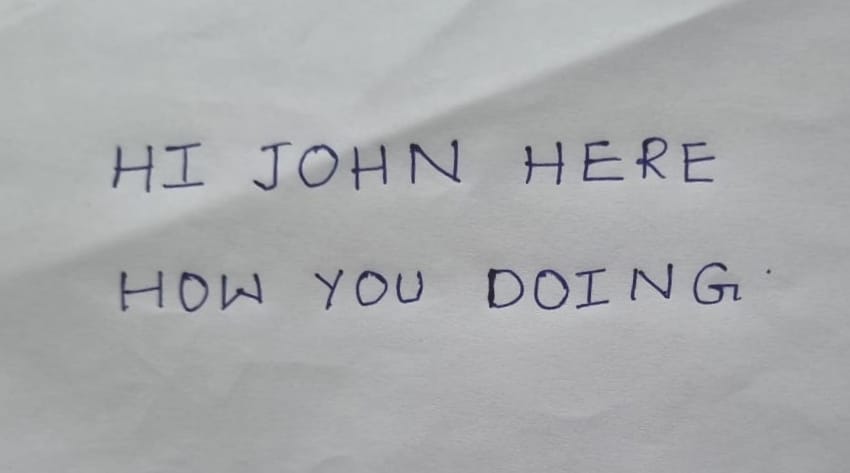 HI JOHN HERE
HOW YOU DOING.